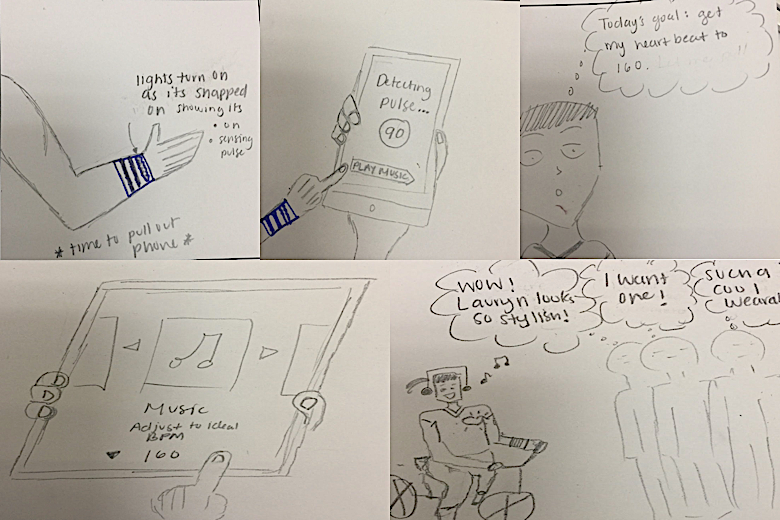 lights turn on
as its snapped
on showing its
• on
• sensing
pulse
* time to pull out
phone *
Detecting
pulse...
90
PLAY MUSIC
Today's goal: get
my heart beat to
160.
Music
Adjust to ideal
BPM
160
WOW!
Lauryn looks
so stylish!
I want
one!
such a
cool